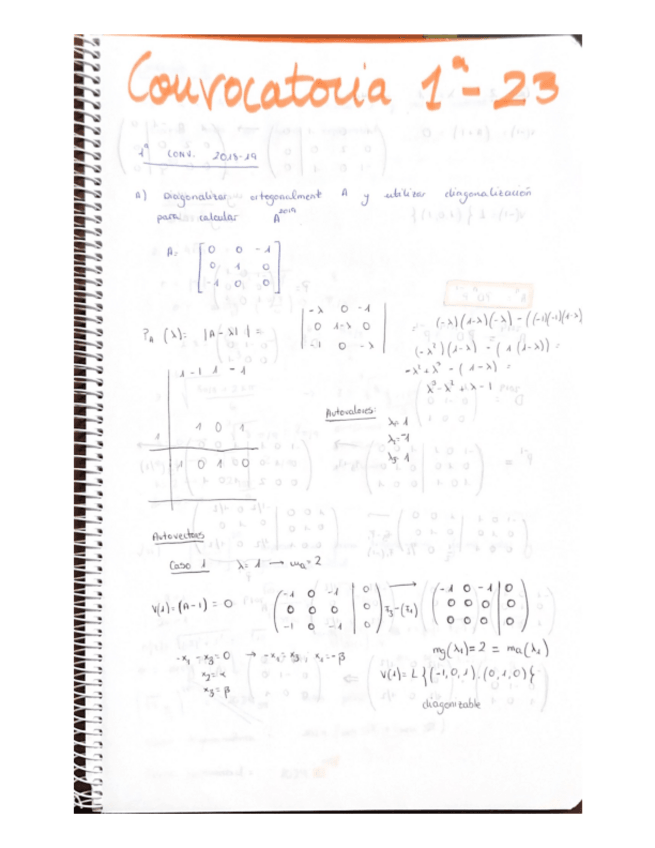 Convocatoria 1ª- 23
1ª CONV. 2018-19
A) Diagonalizar ortogonalment A y utilizar diagonalización
para calcular A²⁰¹⁹
A: [ 0 0 -1
0 1 0
-1 0 0 ]
P_A (λ): |A-λI| = | -λ 0 -1
0 1-λ 0
-1 0 -λ |
= (-λ)(1-λ)(-λ) - ((-1)(-1)(1-λ)
(-λ²)(1-λ) - (1(1-λ)) =
-λ²+λ³ - (1-λ) =
λ³-λ²+λ-1
1 -1 1 -1
1 0 1
1
1 0 1 0
Autovalores:
λ₁=1
λ₂=-1
λ₃=1
Autovectores
Caso 1 λ=1 → ma=2
V(1)=(A-1)=0 ( -1 0 -1 | 0
0 0 0 | 0
-1 0 -1 | 0 ) → ( -1 0 -1 | 0
0 0 0 | 0
0 0 0 | 0 )
mg(λ₁)=2 = ma(λ₁)
-x₁ -x₃=0 → -x₁=x₃ x₁=-β
x₂=α
x₃=β
V(1)=L{(-1,0,1).(0,1,0)}
diagonizable